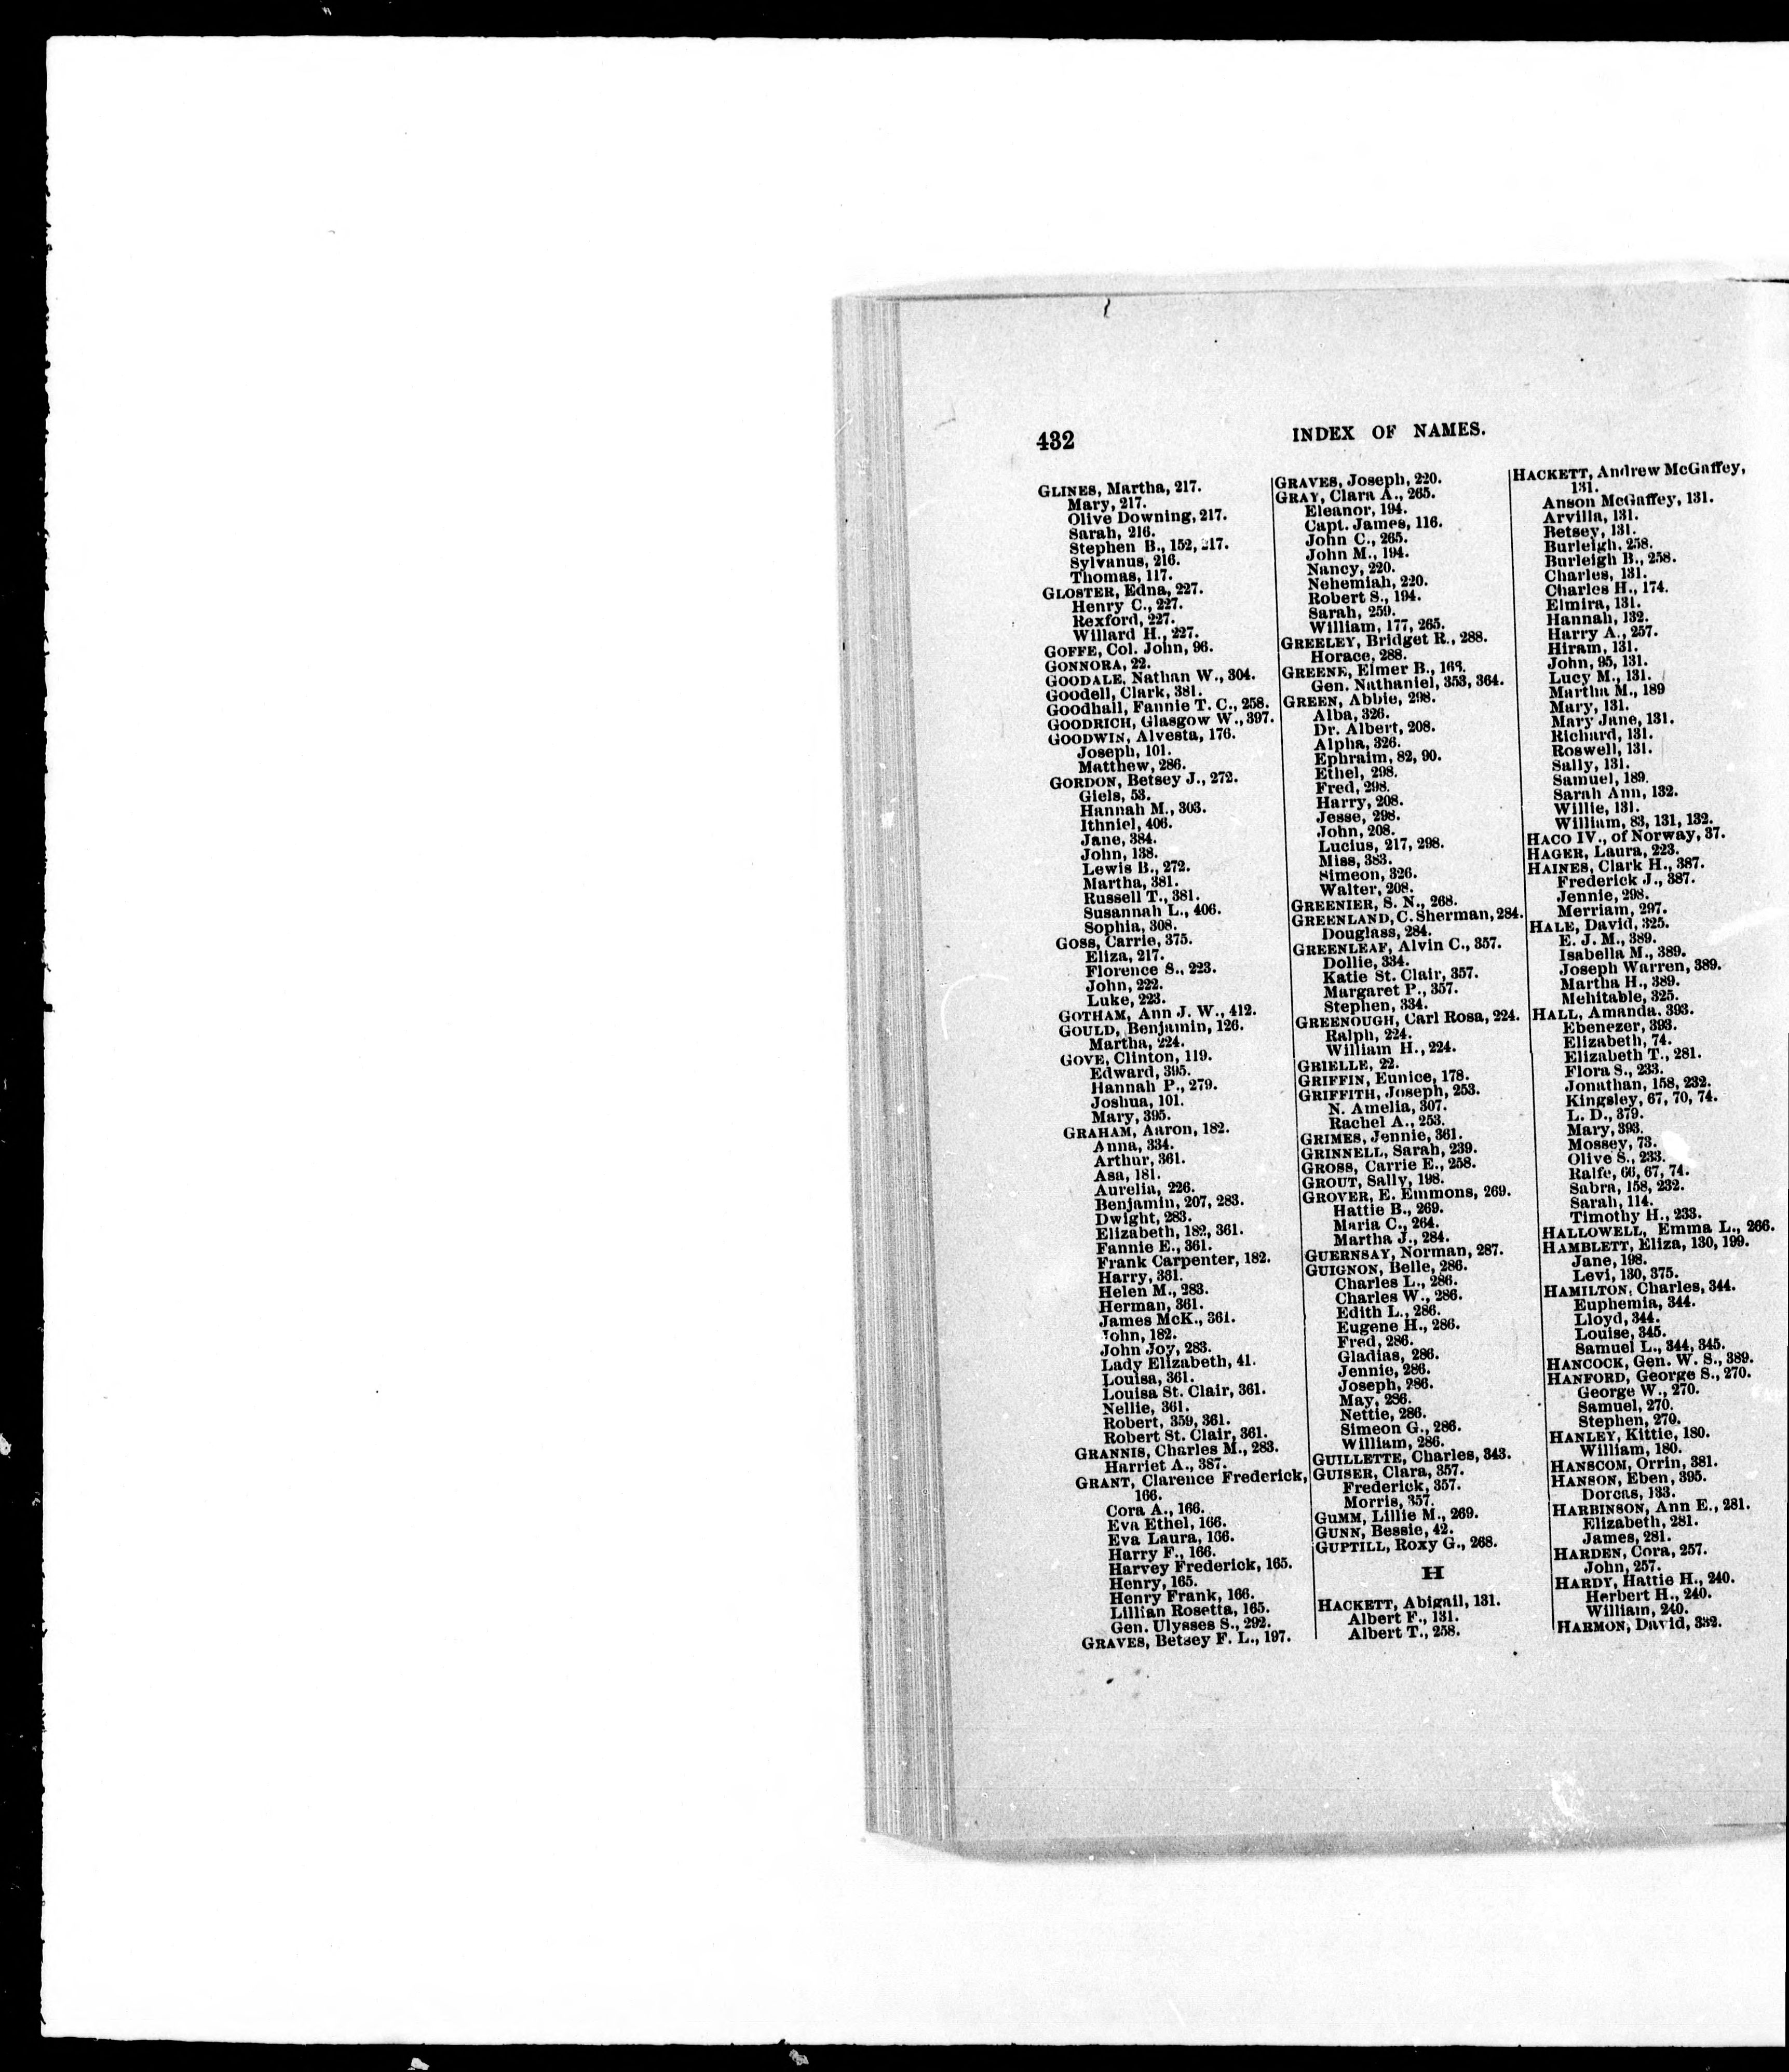 432
INDEX OF NAMES.
GLINES, Martha, 217.
Mary, 217.
Olive Downing, 217.
Sarah, 216.
Stephen B., 152, 217.
Sylvanus, 216.
Thomas, 117.
GLOSTER, Edna, 227.
Henry C., 227.
Rexford, 227.
Willard H., 227.
GOFFE, Col. John, 96.
GONNORA, 22.
GOODALE, Nathan W., 304.
Goodell, Clark, 381.
Goodhall, Fannie T. C., 258.
GOODRICH, Glasgow W., 397.
GOODWIN, Alvesta, 176.
Joseph, 101.
Matthew, 286.
GORDON, Betsey J., 272.
Giels, 53.
Hannah M., 303.
Ithniel, 406.
Jane, 384.
John, 138.
Lewis B., 272.
Martha, 381.
Russell T., 381.
Susannah L., 406.
Sophia, 308.
GOSS, Carrie, 375.
Eliza, 217.
Florence S., 223.
John, 222.
Luke, 223.
GOTHAM, Ann J. W., 412.
GOULD, Benjamin, 126.
Martha, 224.
GOVE, Clinton, 119.
Edward, 395.
Hannah P., 279.
Joshua, 101.
Mary, 395.
GRAHAM, Aaron, 182.
Anna, 334.
Arthur, 361.
Asa, 181.
Aurelia, 226.
Benjamin, 207, 283.
Dwight, 283.
Elizabeth, 182, 361.
Fannie E., 361.
Frank Carpenter, 182.
Harry, 361.
Helen M., 283.
Herman, 361.
James McK., 361.
John, 182.
John Joy, 283.
Lady Elizabeth, 41.
Louisa, 361.
Louisa St. Clair, 361.
Nellie, 361.
Robert, 359, 361.
Robert St. Clair, 361.
GRANNIS, Charles M., 283.
Harriet A., 387.
GRANT, Clarence Frederick,
166.
Cora A., 166.
Eva Ethel, 166.
Eva Laura, 166.
Harry F., 166.
Harvey Frederick, 165.
Henry, 165.
Henry Frank, 166.
Lillian Rosetta, 165.
Gen. Ulysses S., 292.
GRAVES, Betsey F. L., 197.
GRAVES, Joseph, 220.
GRAY, Clara A., 265.
Eleanor, 194.
Capt. James, 116.
John C., 265.
John M., 194.
Nancy, 220.
Nehemiah, 220.
Robert S., 194.
Sarah, 259.
William, 177, 265.
GREELEY, Bridget R., 288.
Horace, 288.
GREENE, Elmer B., 168.
Gen. Nathaniel, 353, 364.
GREEN, Abbie, 298.
Alba, 326.
Dr. Albert, 208.
Alpha, 326.
Ephraim, 82, 90.
Ethel, 298.
Fred, 298.
Harry, 208.
Jesse, 298.
John, 208.
Lucius, 217, 298.
Miss, 383.
Simeon, 326.
Walter, 208.
GREENIER, S. N., 268.
GREENLAND, C. Sherman, 284.
Douglass, 284.
GREENLEAF, Alvin C., 357.
Dollie, 334.
Katie St. Clair, 357.
Margaret P., 357.
Stephen, 334.
GREENOUGH, Carl Rosa, 224.
Ralph, 224.
William H., 224.
GRIELLE, 22.
GRIFFIN, Eunice, 178.
GRIFFITH, Joseph, 253.
N. Amelia, 307.
Rachel A., 253.
GRIMES, Jennie, 361.
GRINNELL, Sarah, 239.
GROSS, Carrie E., 258.
GROUT, Sally, 198.
GROVER, E. Emmons, 269.
Hattie B., 269.
Maria C., 264.
Martha J., 284.
GUERNSAY, Norman, 287.
GUIGNON, Belle, 286.
Charles L., 286.
Charles W., 286.
Edith L., 286.
Eugene H., 286.
Fred, 286.
Gladias, 286.
Jennie, 286.
Joseph, 286.
May, 286.
Nettie, 286.
Simeon G., 286.
William, 286.
GUILLETTE, Charles, 343.
GUISER, Clara, 357.
Frederick, 357.
Morris, 357.
GUMM, Lillie M., 269.
GUNN, Bessie, 42.
GUPTILL, Roxy G., 268.
H
HACKETT, Abigail, 131.
Albert F., 131.
Albert T., 258.
HACKETT, Andrew McGaffey,
131.
Anson McGaffey, 131.
Arvilla, 131.
Betsey, 131.
Burleigh, 258.
Burleigh B., 258.
Charles, 131.
Charles H., 174.
Elmira, 131.
Hannah, 132.
Harry A., 257.
Hiram, 131.
John, 95, 131.
Lucy M., 131.
Martha M., 189
Mary, 131.
Mary Jane, 131.
Richard, 131.
Roswell, 131.
Sally, 131.
Samuel, 189.
Sarah Ann, 132.
Willie, 131.
William, 83, 131, 132.
HACO IV., of Norway, 37.
HAGER, Laura, 223.
HAINES, Clark H., 387.
Frederick J., 387.
Jennie, 298.
Merriam, 297.
HALE, David, 325.
E. J. M., 389.
Isabella M., 389.
Joseph Warren, 389.
Martha H., 389.
Mehitable, 325.
HALL, Amanda, 393.
Ebenezer, 393.
Elizabeth, 74.
Elizabeth T., 281.
Flora S., 233.
Jonathan, 158, 232.
Kingsley, 67, 70, 74.
L. D., 379.
Mary, 393.
Mossey, 73.
Olive S., 233.
Ralfe, 66, 67, 74.
Sabra, 158, 232.
Sarah, 114.
Timothy H., 233.
HALLOWELL, Emma L., 266.
HAMBLETT, Eliza, 130, 199.
Jane, 198.
Levi, 130, 375.
HAMILTON, Charles, 344.
Euphemia, 344.
Lloyd, 344.
Louise, 345.
Samuel L., 344, 345.
HANCOCK, Gen. W. S., 389.
HANFORD, George S., 270.
George W., 270.
Samuel, 270.
Stephen, 270.
HANLEY, Kittie, 180.
William, 180.
HANSCOM, Orrin, 381.
HANSON, Eben, 395.
Dorcas, 133.
HARBINSON, Ann E., 281.
Elizabeth, 281.
James, 281.
HARDEN, Cora, 257.
John, 257.
HARDY, Hattie H., 240.
Herbert H., 240.
William, 240.
HARMON, David, 332.